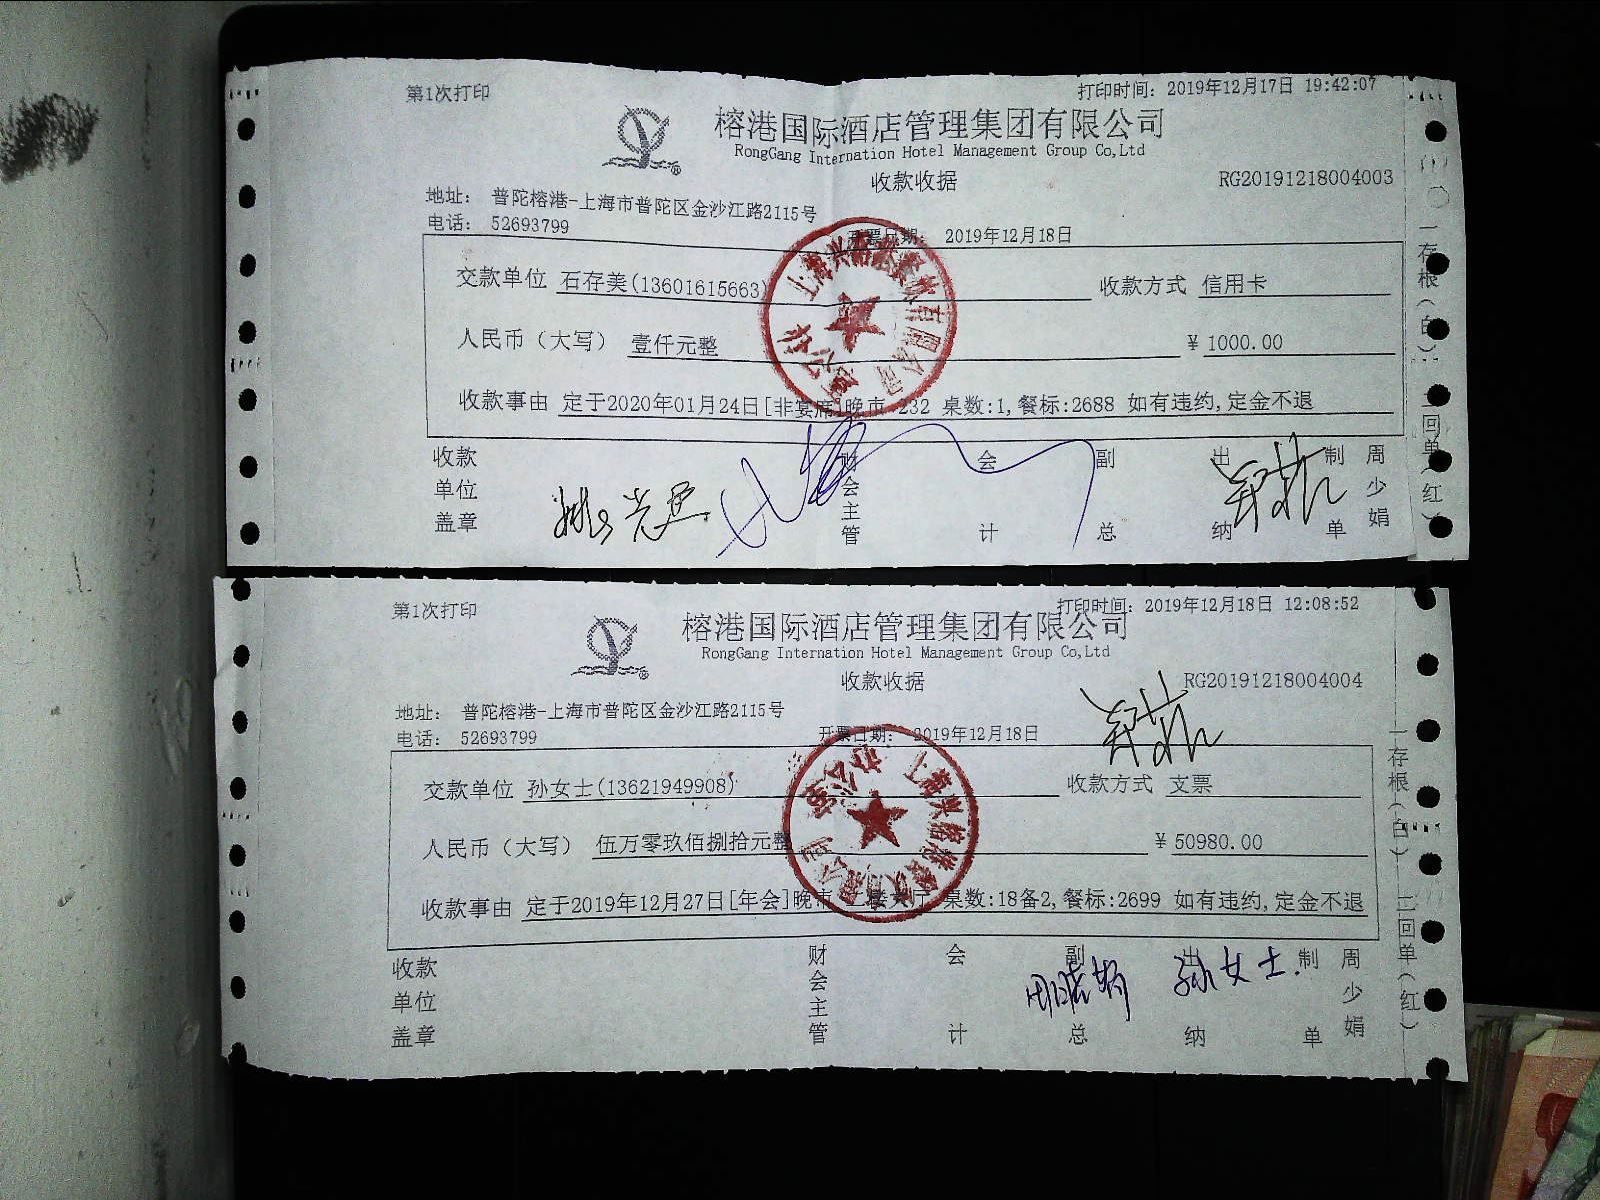 第1次打印
打印时间：2019年12月17日 19:42:07
榕港国际酒店管理集团有限公司
RongGang Internation Hotel Management Group Co,Ltd
收款收据
RG20191218004003
地址： 普陀榕港-上海市普陀区金沙江路2115号
电话： 52693799
开票日期： 2019年12月18日
交款单位 石存美(13601615663) 收款方式 信用卡
人民币（大写） 壹仟元整 ￥1000.00
收款事由 定于2020年01月24日[非宴席]晚市 232 桌数:1,餐标:2688 如有违约,定金不退
收款单位盖章 财会主管 会计 副总 出纳 制单 周少娟
一存根(白) 二回单(红)
第1次打印
打印时间：2019年12月18日 12:08:52
榕港国际酒店管理集团有限公司
RongGang Internation Hotel Management Group Co,Ltd
收款收据
RG20191218004004
地址： 普陀榕港-上海市普陀区金沙江路2115号
电话： 52693799
开票日期： 2019年12月18日
交款单位 孙女士(13621949908) 收款方式 支票
人民币（大写） 伍万零玖佰捌拾元整 ￥50980.00
收款事由 定于2019年12月27日[年会]晚市 二楼大厅 桌数:18备2,餐标:2699 如有违约,定金不退
收款单位盖章 财会主管 会计 副总 出纳 制单 周少娟
孙女士
一存根(白) 二回单(红)